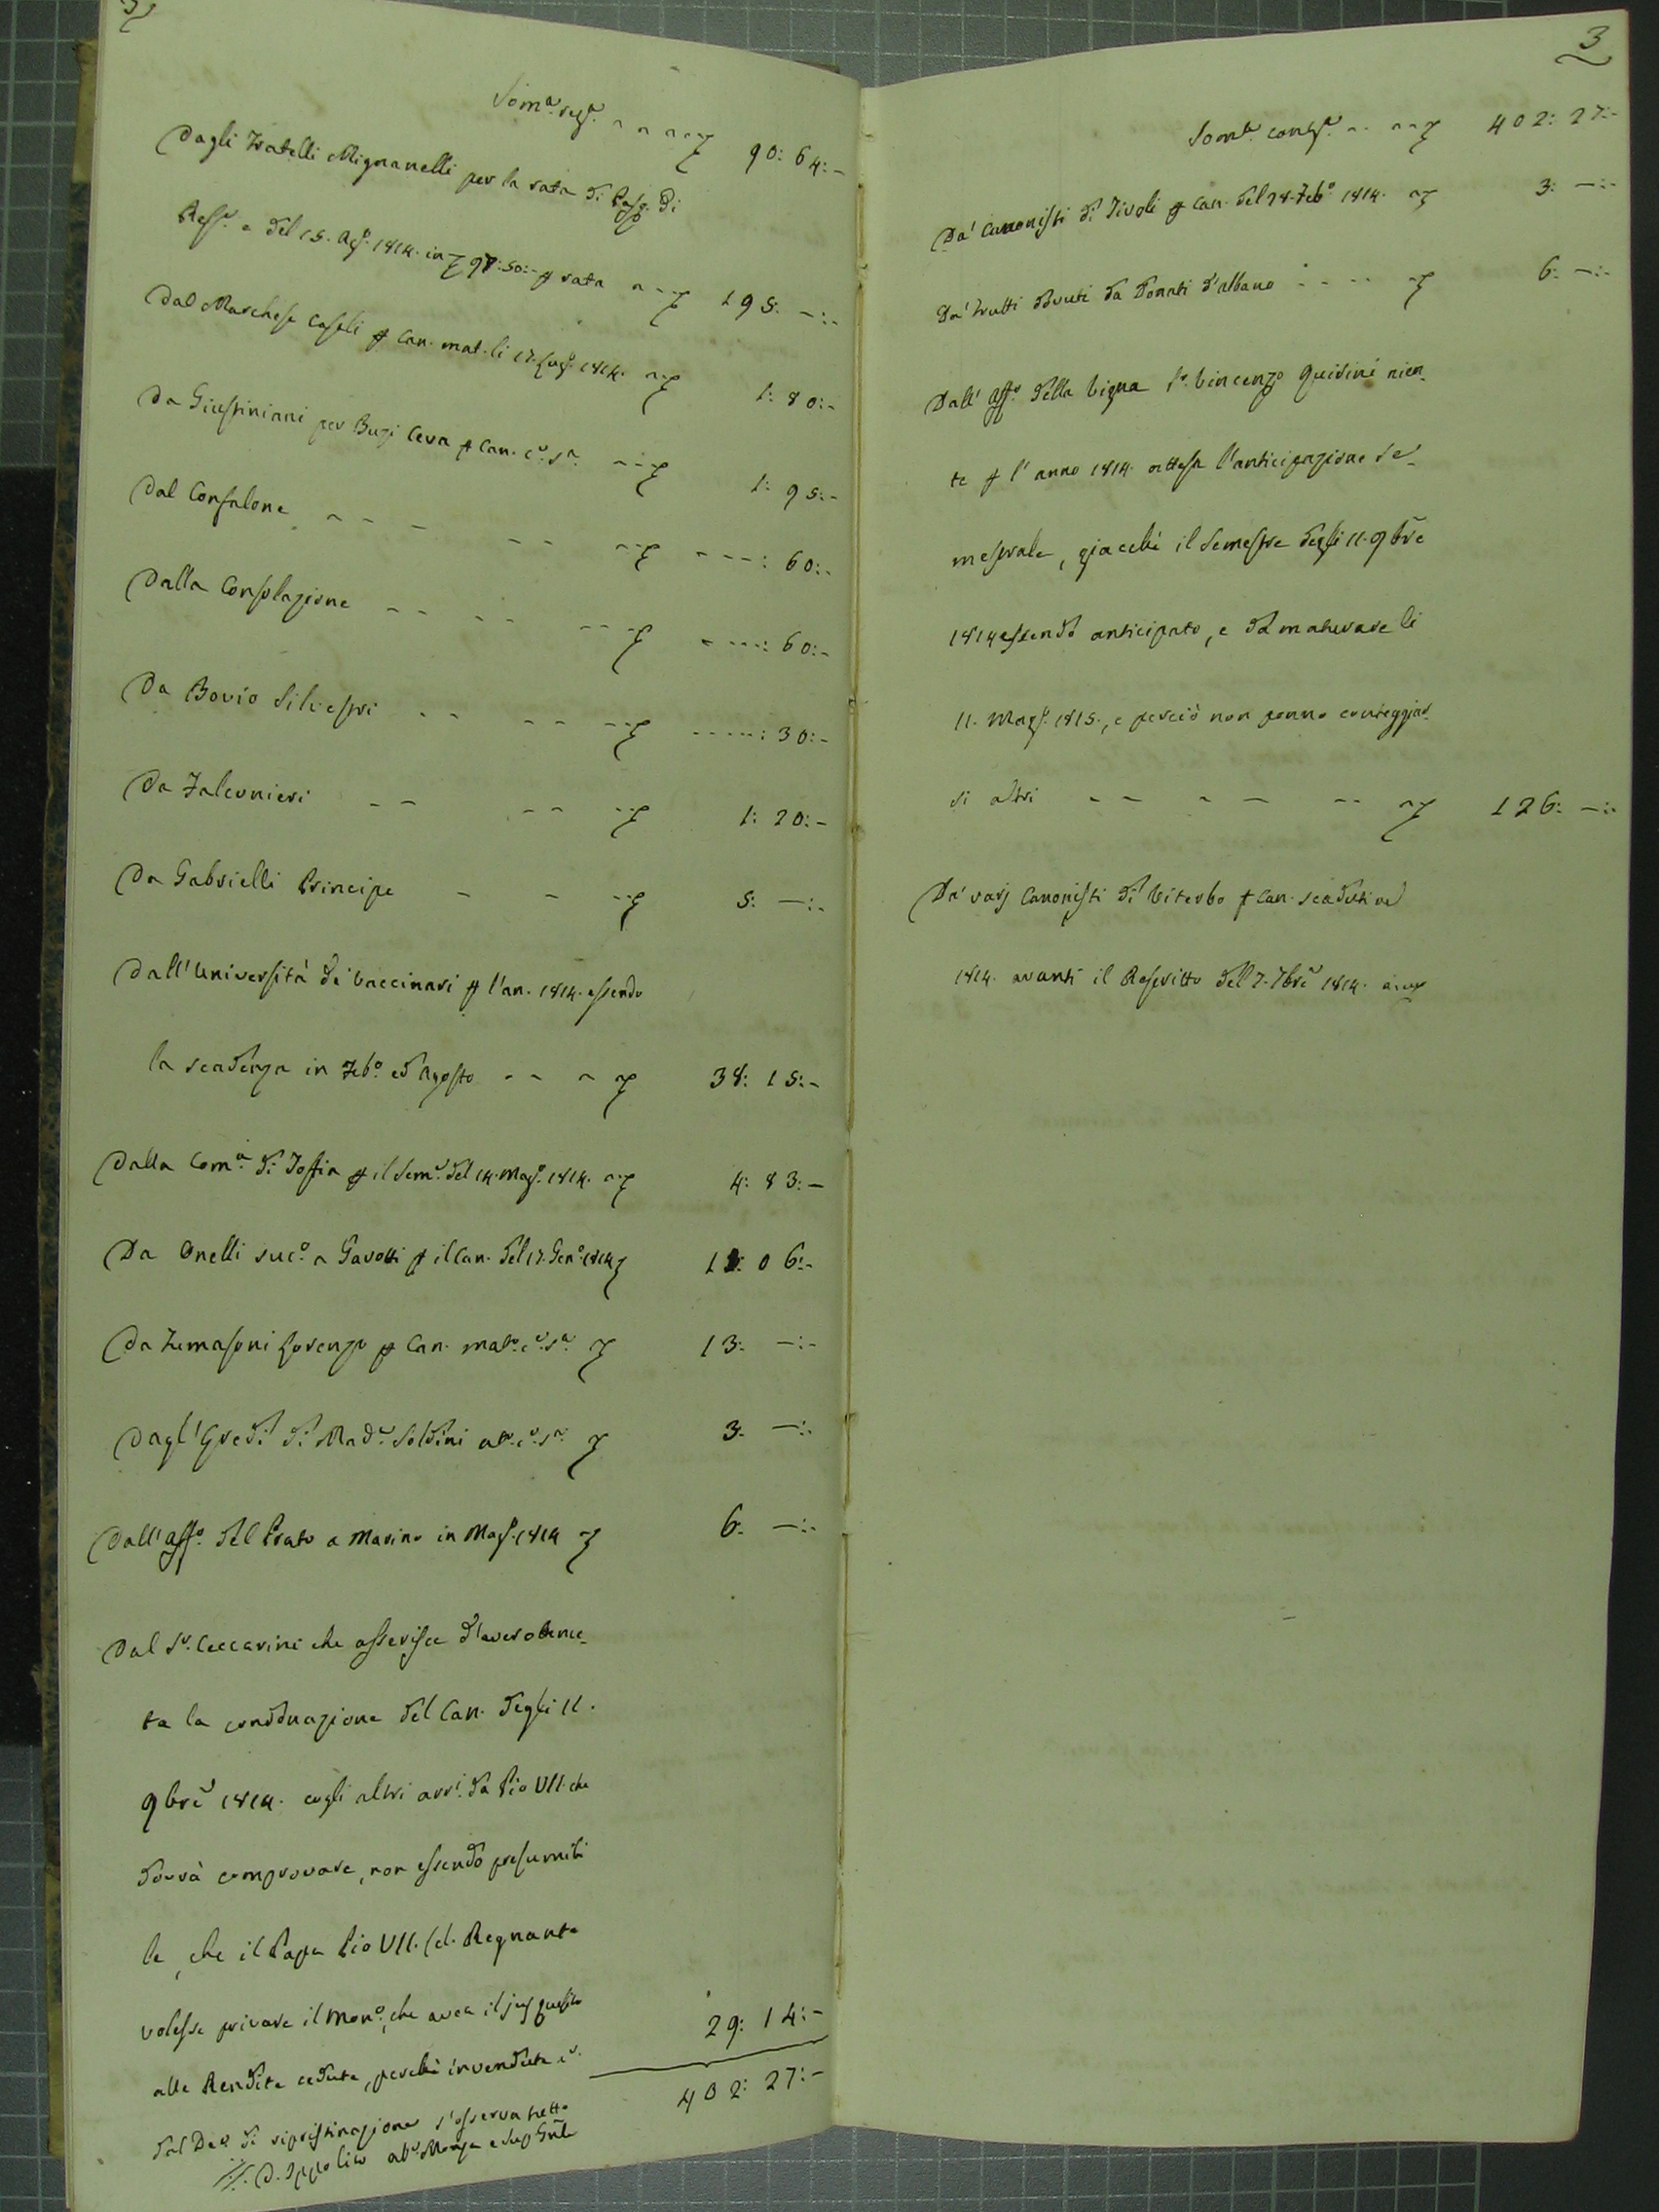 Som.a seg.e - - - - 90: 64:-
Dagli Fratelli Mignanelli per la rata di Pasq. di
Ress.e e del 15. Ag.o 1814. in 97:50:- p rata - - 195. -:-
Dal Marchese Casali p Can. mat. li 17. Lug.o 1814. - 1: 80:-
Da Giustiniani per Bugi Ceva p Can. c.e s.a - - 1: 95:-
Dal Confalone - - - - - - - - -: 60:-
Dalla Consolazione - - - - - - - - -: 60:-
Da Bovio Silvestri - - - - - - - - -: 30:-
Da Falconieri - - - - - - 1: 20:-
Da Gabrielli Principe - - - 5: -:-
Dall'Università de' Vaccinari p l'an. 1814. essendo
la scadenza in Feb.o ed Agosto - - - 38: 15:-
Dalla Com.à di Toffia p il Sem.e del 14. Mag.o 1814. - 4: 83:-
Da Onelli suc.o a Gavotti p il Can. del 17. Gen.o 1814 06:-
Da Tomasoni Lorenzo p Can. mat.o c.e s.a 13. -:-
Dagl'Eredi di Mad.e Soldini c.e s.a 3. -:-
Dall'Aff.o del Prato a Marino in Mag.o 1814 6. -:-
Dal S.r Ceccarini che asserisce d'aver ottenu-
ta la condonazione del Can. degli 11.
9bre 1814. cogli altri arr.i da Pio VII. che
dovrà comprovare, non essendo presumibi
le, che il Papa Pio VII. fel. Regnante
volesse privare il Mon.o, che avea il jus quesito
alle Rendite cedute, perchè invendute c.e
dal Dec. di ripristinazione s'osserva nette 29: 14:-
D. Ippolito Ab.e Monza e Sup Gnle 402: 27:-
3
Som.a contr.a - - - - 402: 27:-
Da' Canonisti di Tivoli p Can. del 28. Feb.o 1814. 3: -:-
Da' frutti dovuti da Donati d'Albano - - - - 6: -:-
Dall'Aff.o della Vigna S.r Vincenzo Guidini nien-
te p l'anno 1814. attesa l'anticipazione se-
mestrale, giacchè il Semestre degli 11. 9bre
1814 essendo anticipato, e da maturare li
11. Mag.o 1815., e perciò non ponno conteggiar-
si altri - - - - - - 126: -:-
Da' varj Canonisti di Viterbo p Can. scaduti nel
1814. avanti il Rescritto del 2. 7bre 1814.